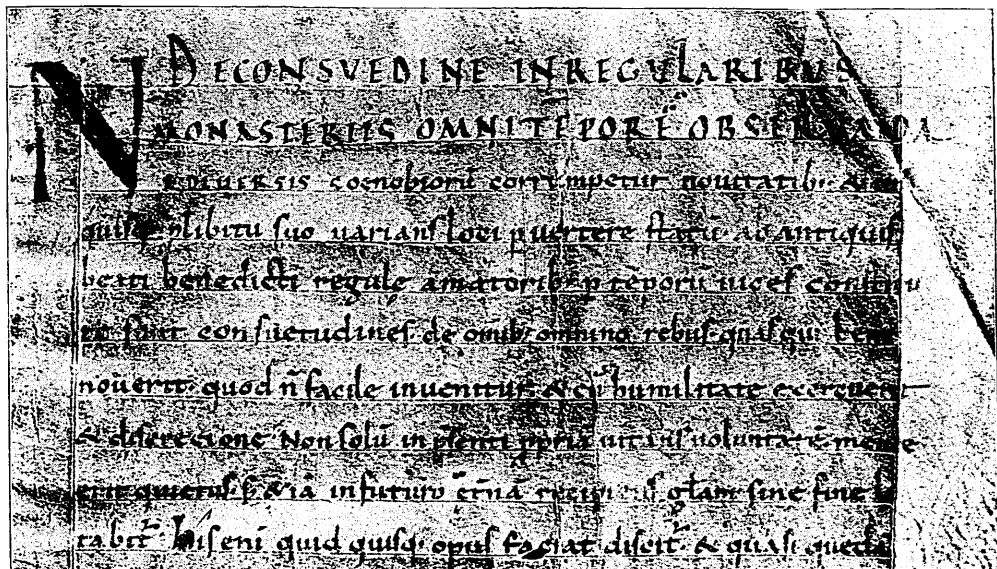 DE CONSUEDINE IN REGULARIBUS
MONASTERIIS OMNI TEPORE OBSERVANDA
NE DIVERSIS coenobiorū corrumpetur nouitatib; &
quisq; p libitu suo uarians loci puertere statū ab antiquis
beati benedicti regule amatorib; p tēporū uices constitu
te sunt consuetudines de omib; omnino rebus quas qui bene
nouerit quod n̄ facile inuenitur & cū humilitate exercuerit
& discrecione Non solū in p̄senti ppriā uitans uoluntatē mente
erit quietus s; & iā in futuro et̄nā recipiens gl̄am sine fine
tabit̄ His enī quid quisq; opus faciat discit̄ & quasi quedā